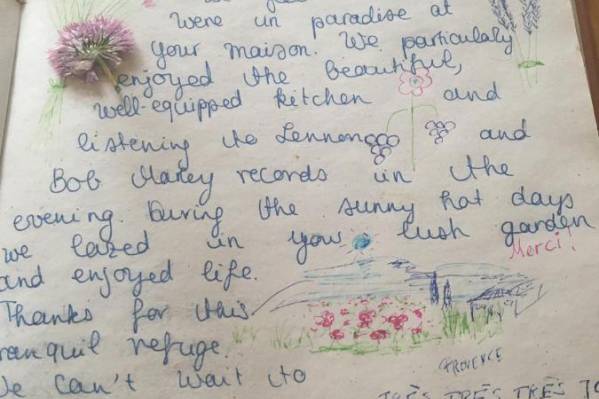 were in paradise at
your maison. We particularly
enjoyed the beautiful,
well-equipped kitchen and
listening to Lennon and
Bob Marley records in the
evening. During the sunny hot days
we lazed in your lush garden
Merci!
and enjoyed life.
Thanks for this
tranquil refuge.
PROVENCE
We can't wait to
TRÈS TRÈS TRÈS